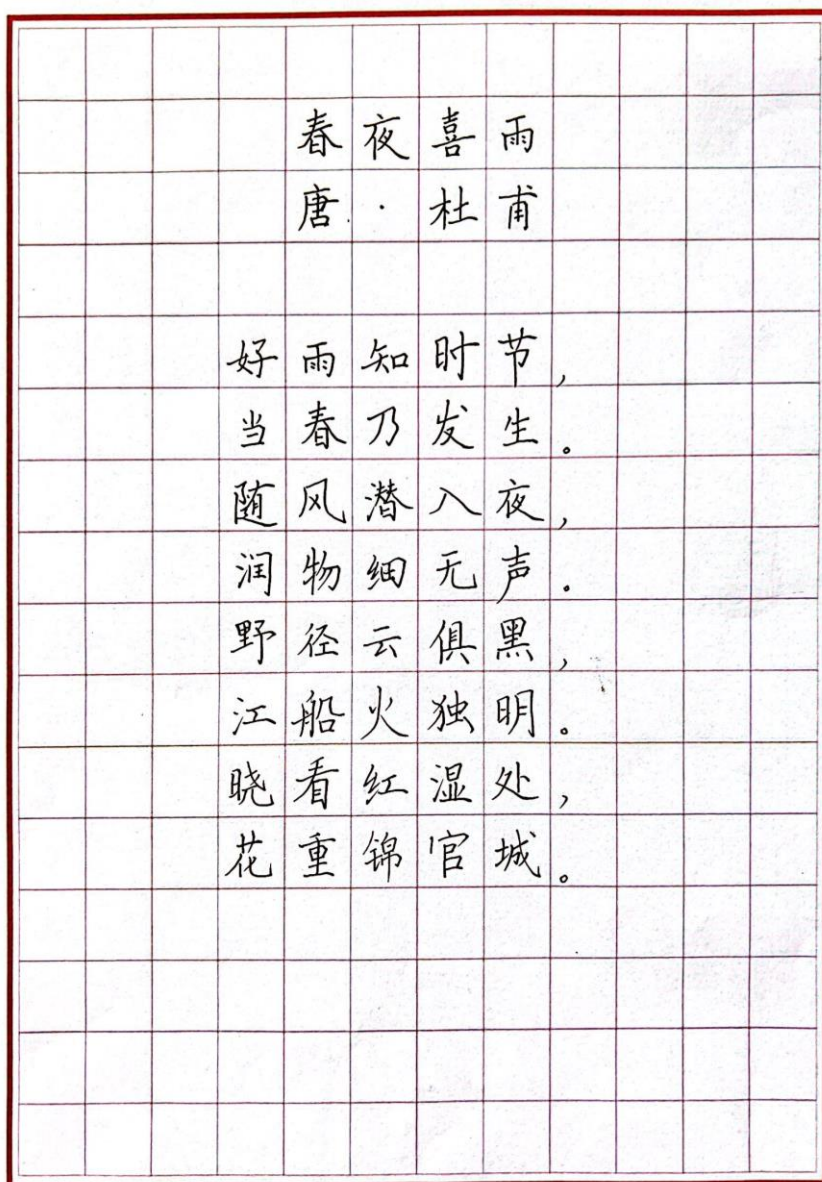 春夜喜雨
唐·杜甫
好雨知时节，
当春乃发生。
随风潜入夜，
润物细无声.
野径云俱黑，
江船火独明。
晓看红湿处，
花重锦官城。